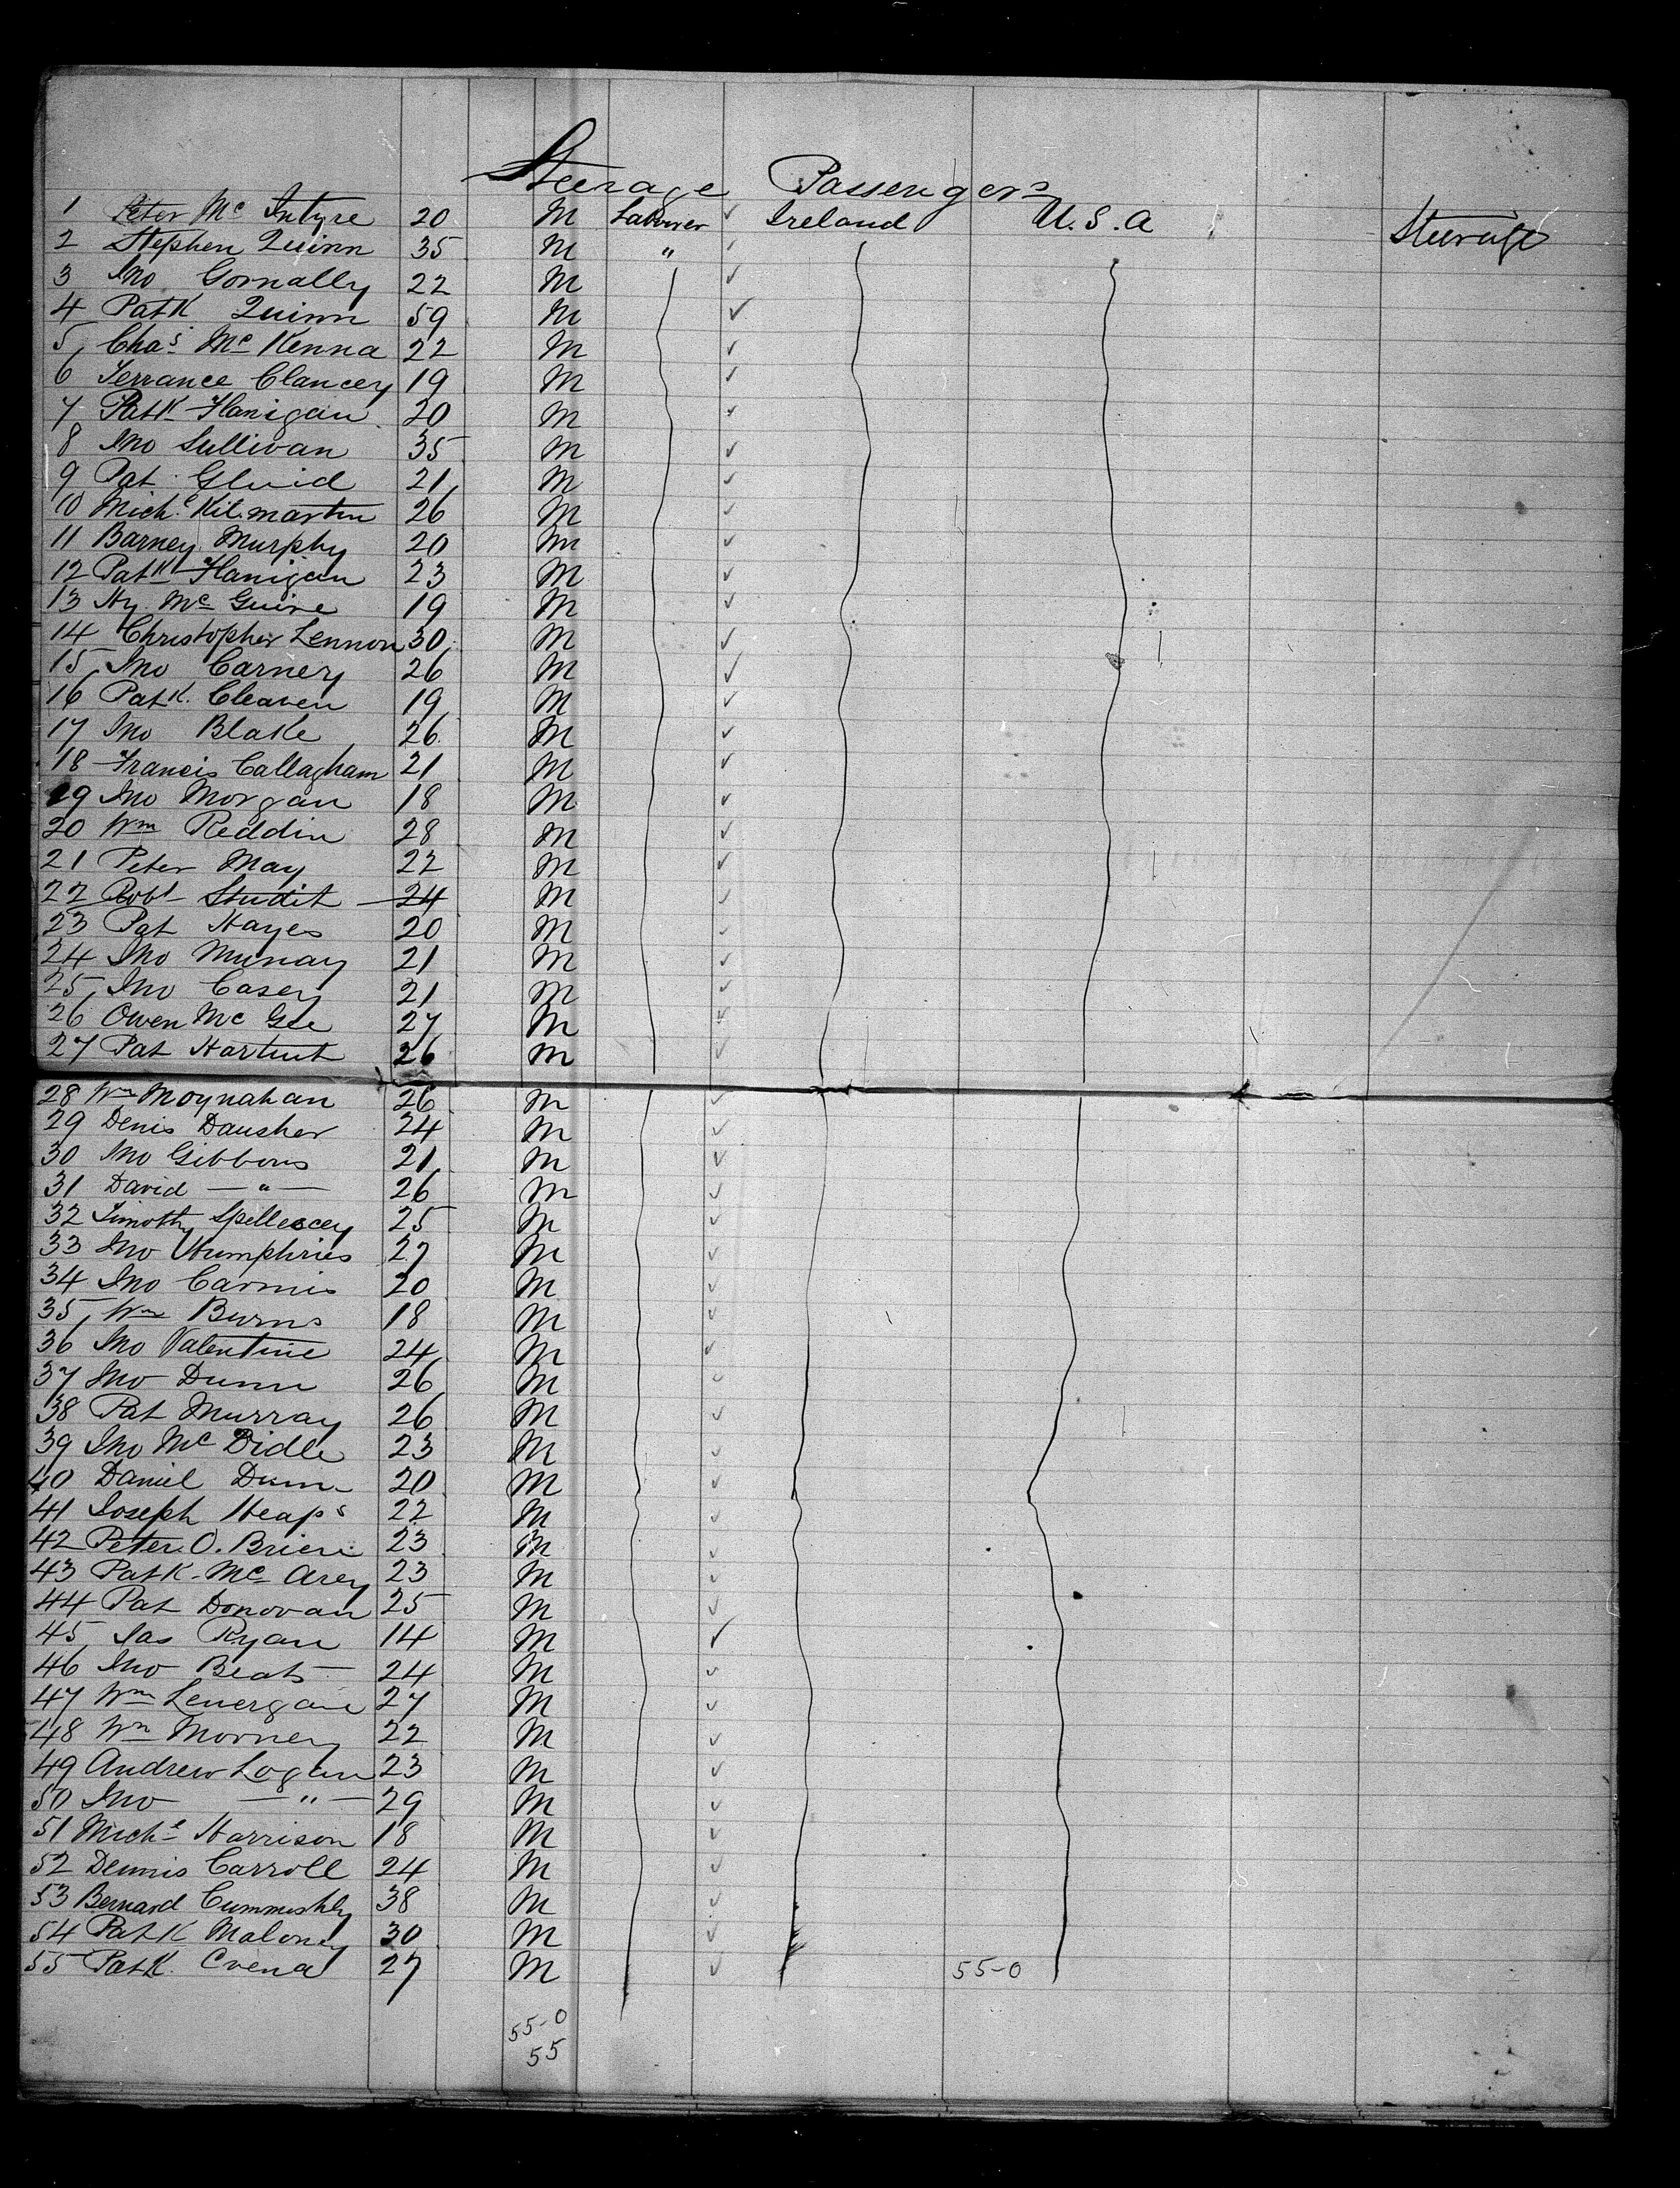 Steerage Passengers
1 Peter Mc Intyre 20 M Labourer ✓ Ireland U.S.A Steerage
2 Stephen Quinn 35 M " ✓
3 Jno Gornally 22 M ✓
4 Patk Quinn 59 M ✓
5 Chas Mc Kenna 22 M ✓
6 Terrance Clancey 19 M ✓
7 Patk Flanigan 20 M ✓
8 Jno Sullivan 35 M ✓
9 Pat 21 M ✓
10 Michl Kilmartin 26 M ✓
11 Barney Murphy 20 M ✓
12 Patk Flanigan 23 M ✓
13 Hy. Mc Guire 19 M ✓
14 Christopher Lennon 30 M ✓
15 Jno Carney 26 M ✓
16 Patk. Cleaven 19 M ✓
17 Jno Blake 26 M ✓
18 Francis Callagham 21 M ✓
19 Jno Morgan 18 M ✓
20 Wm Reddin 28 M ✓
21 Peter May 22 M ✓
22 Robt Studit 24 M ✓
23 Pat Hayes 20 M ✓
24 Jno Murray 21 M ✓
25 Jno Casey 21 M ✓
26 Owen Mc Gee 27 M ✓
27 Pat Hartnut 26 M ✓
28 Wm Moynahan 26 M ✓
29 Denis Dausher 24 M ✓
30 Jno Gibbons 21 M ✓
31 David — " — 26 M ✓
32 Timothy Spellescey 25 M ✓
33 Jno Humphries 27 M ✓
34 Jno Carmis 20 M ✓
35 Wm Burns 18 M ✓
36 Jno Valentine 24 M ✓
37 Jno Dunn 26 M ✓
38 Pat Murray 26 M ✓
39 Jno Mc Didle 23 M ✓
40 Daniel Dunn 20 M ✓
41 Joseph Heaps 22 M ✓
42 Peter O. Brien 23 M ✓
43 Patk Mc Arey 23 M ✓
44 Pat Donovan 25 M ✓
45 Jas Ryan 14 M ✓
46 Jno Beats 24 M ✓
47 Wm Lenergan 27 M ✓
48 Wm Morney 22 M ✓
49 Andrew Logan 23 M ✓
50 Jno — " — 29 M ✓
51 Michl Harrison 18 M ✓
52 Dennis Carroll 24 M ✓
53 Bernard Cummishly 38 M ✓
54 Patk Maloney 30 M ✓
55 Patk. Crena 27 M ✓ 55-0
55-0
55